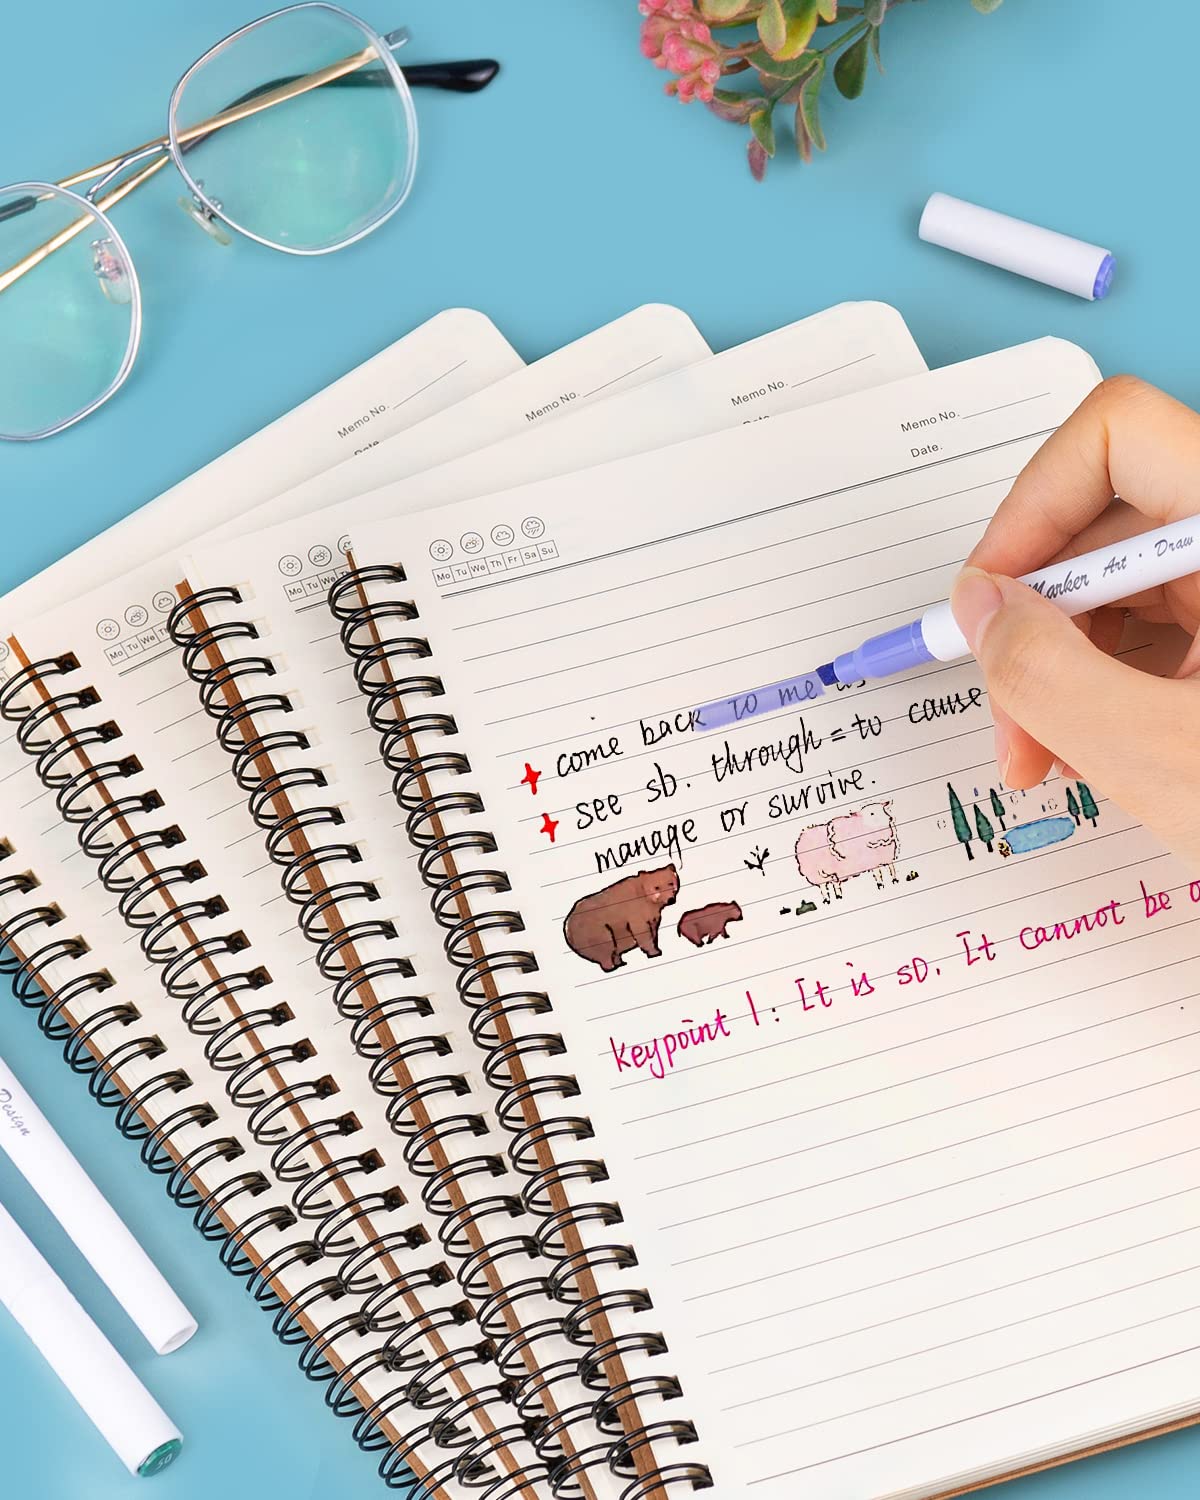 Memo No.
Memo No.
Memo No.
Memo No.
Date.
Date.
Mo Tu We Th Fr Sa Su
Mo Tu We
Mo Tu We Th
Marker Art · Draw
come back to me as
see sb. through = to cause
manage or survive.
keypoint 1: It is so. It cannot be
Design
50